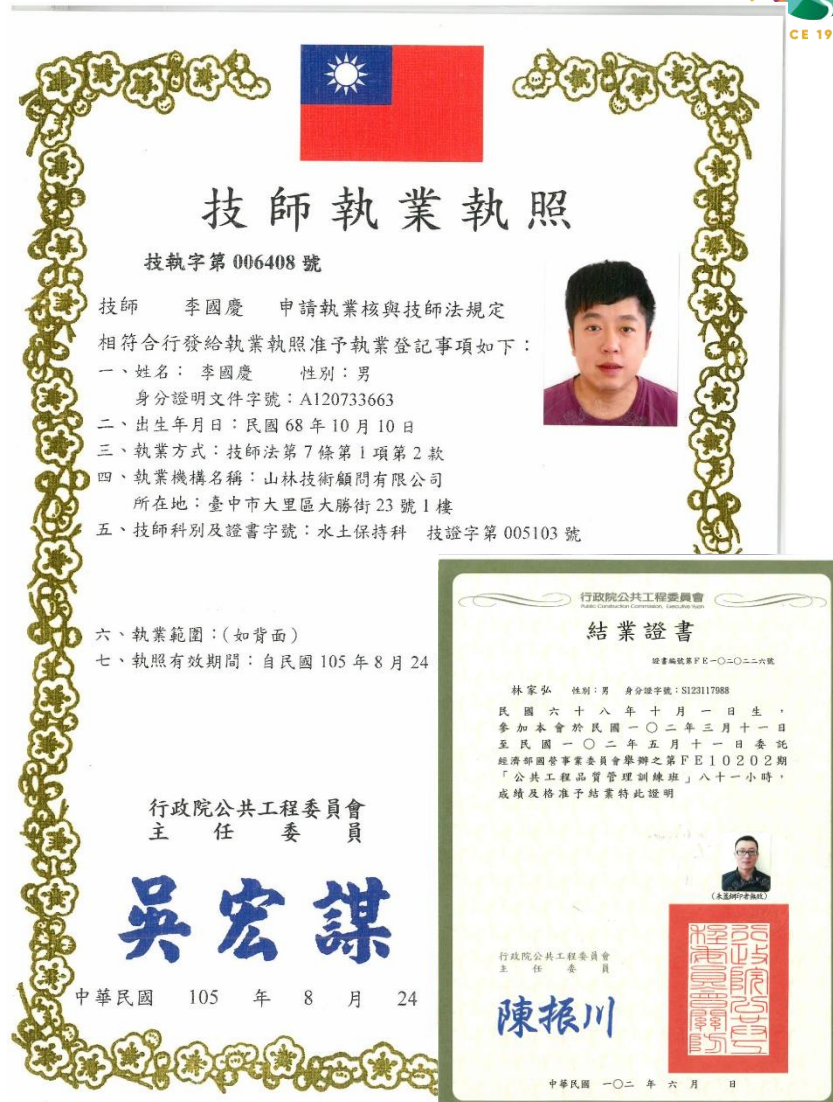 CE 19
技師執業執照
技執字第 006408 號
技師 李國慶 申請執業核與技師法規定
相符合行發給執業執照准予執業登記事項如下：
一、姓名： 李國慶 性別：男
身分證明文件字號：A120733663
二、出生年月日：民國 68 年 10 月 10 日
三、執業方式：技師法第 7 條第 1 項第 2 款
四、執業機構名稱：山林技術顧問有限公司
所在地：臺中市大里區大勝街 23 號 1 樓
五、技師科別及證書字號：水土保持科 技證字第 005103 號
六、執業範圍：(如背面)
七、執照有效期間：自民國 105 年 8 月 24
行政院公共工程委員會
主任委員
吳宏謀
中華民國 105 年 8 月 24
行政院公共工程委員會
Public Construction Commission, Executive Yuan
結業證書
證書編號第FE一〇二〇二二六號
林家弘 性別：男 身分證字號：S123117988
民國六十八年十月一日生，
參加本會於民國一〇二年三月十一日
至民國一〇二年五月十一日委託
經濟部國營事業委員會舉辦之第FE10202期
「公共工程品質管理訓練班」八十一小時，
成績及格准予結業特此證明
(未蓋鋼印者無效)
行政院公共工程委員會
主任委員
陳振川
行政院公共工程委員會關防
中華民國 一〇二 年 六 月 日